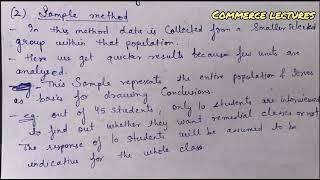 COMMERCE LECTURES
(2) Sample method
- In this method data is collected from a smaller selected
group within that population.
- Here we get quicker results because few units are
analysed.
- This sample represents the entire population & serves
as basis for drawing conclusions.
- eg. out of 45 students, only 10 students are interviewed
to find out whether they want remedial classes or not.
The response of 10 students will be assumed to be
indicative for the whole class